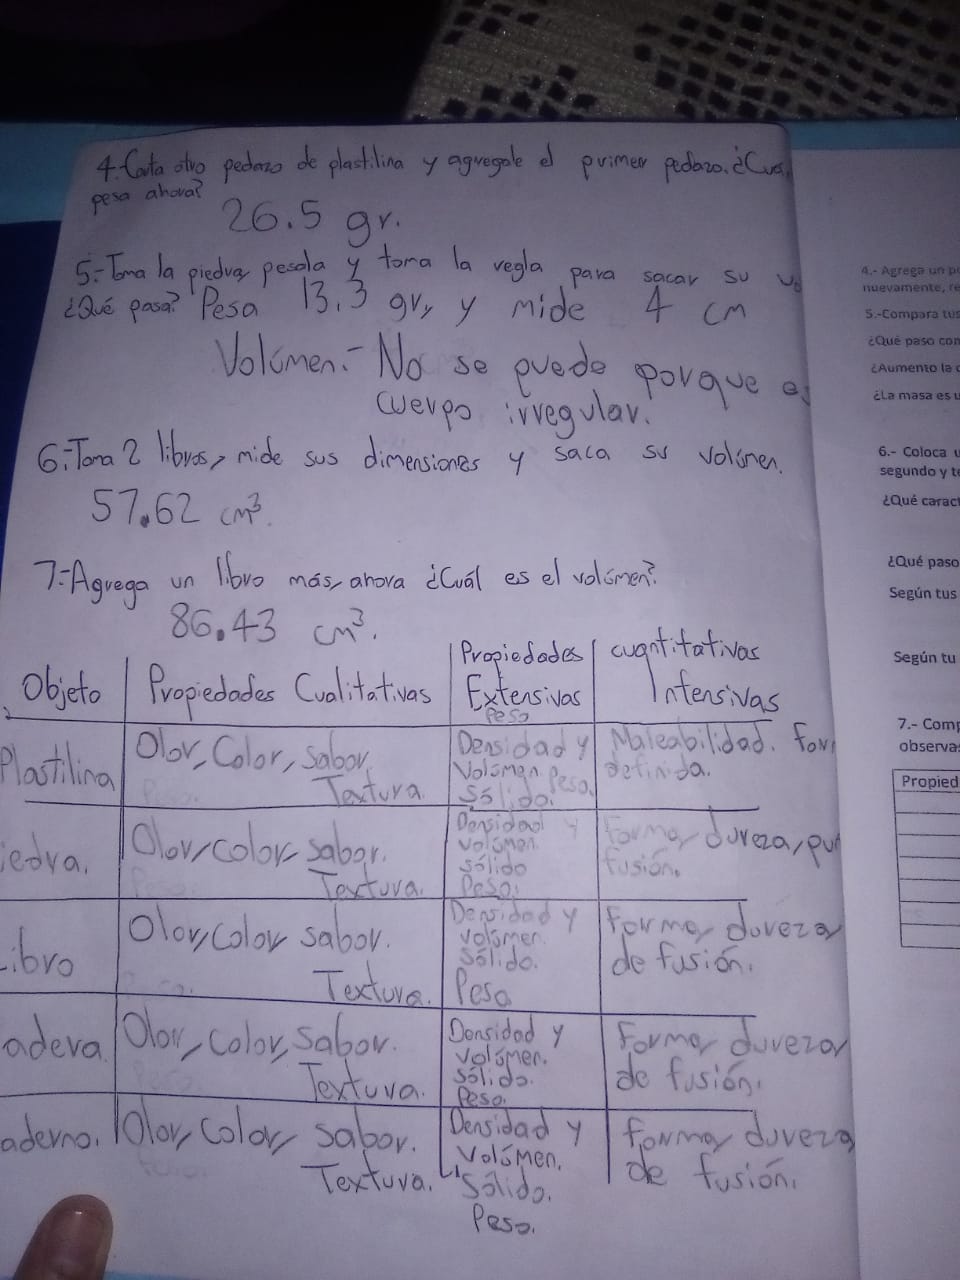 4.-Corta otro pedazo de plastilina y agregale el primer pedazo. ¿Cua
pesa ahora?
26.5 gr.
5.-Toma la piedra, pesala y toma la regla para sacar su vo
¿Qué pasa? Pesa 13.3 gr, y mide 4 cm
Volúmen.- No se puede porque es
cuerpo irregular.
6.-Toma 2 libros, mide sus dimensiones y saca su volúmen.
57.62 cm³.
7.-Agrega un libro más, ahora ¿Cuál es el volúmen?
86.43 cm³.
Propiedades cuantitativas
Objeto Propiedades Cualitativas Extensivas Intensivas
Peso
Plastilina Olor, Color, sabor. Densidad y Maleabilidad. for
Textura. Volúmen. Peso. definida.
Sólido.
iedra. Olor, color, sabor. Densidad y Forma, dureza, pu
Textura. volúmen. fusión.
sólido
Peso.
ibro Olor, color, sabor. Densidad y Forma, dureza,
Textura. volúmen. de fusión.
Sólido.
Peso
adera. Olor, color, sabor. Densidad y Forma, dureza,
Textura. volúmen. de fusión.
Sólido.
Peso.
aderno. Olor, color, sabor. Densidad y Forma, dureza
Textura. Volúmen. de fusión.
Sólido.
Peso.
4.- Agrega un p
nuevamente, re
5.-Compara tus
¿Qué paso con
¿Aumento la c
¿La masa es u
6.- Coloca u
segundo y t
¿Qué caract
¿Qué paso
Según tus
Según tu
7.- Comp
observa
Propied